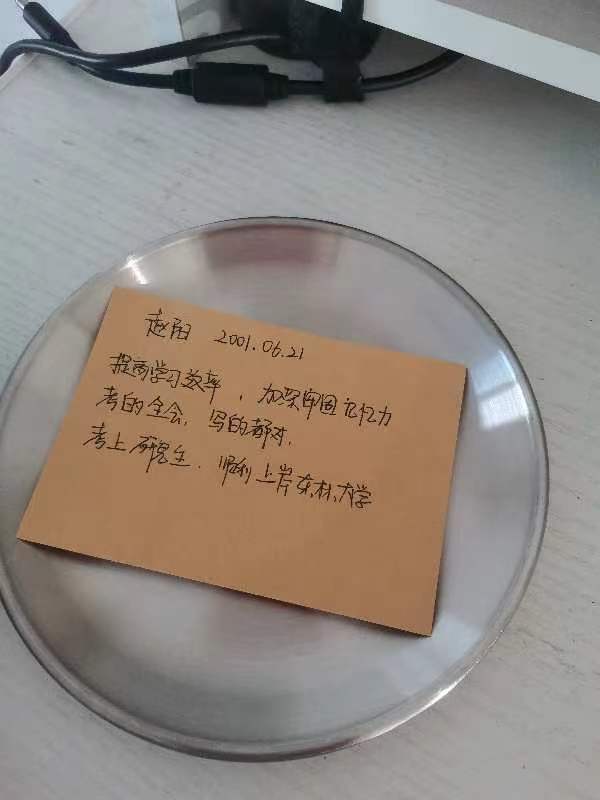 赵阳 2001.06.21
提高学习效率，加深牢固记忆力
考的全会，写的都对，
考上研究生，顺利上岸东林大学